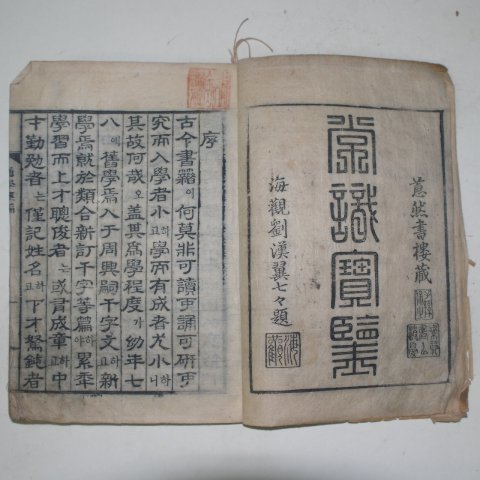 然書樓藏
常識寶鑑
海觀劉漢翼七々題
序
古今書籍이何莫非可讀可誦可硏可
究而入學者小하고學而有成者尤小하니
其故何哉오盖其爲學程度가幼年七
八에舊學焉入于周興嗣千字文하고新
學焉就於類合新訂千字等篇하야累年
學習而上才聰俊者는或成章하고中
才勤勉者는僅記姓名하고下才駑鈍者